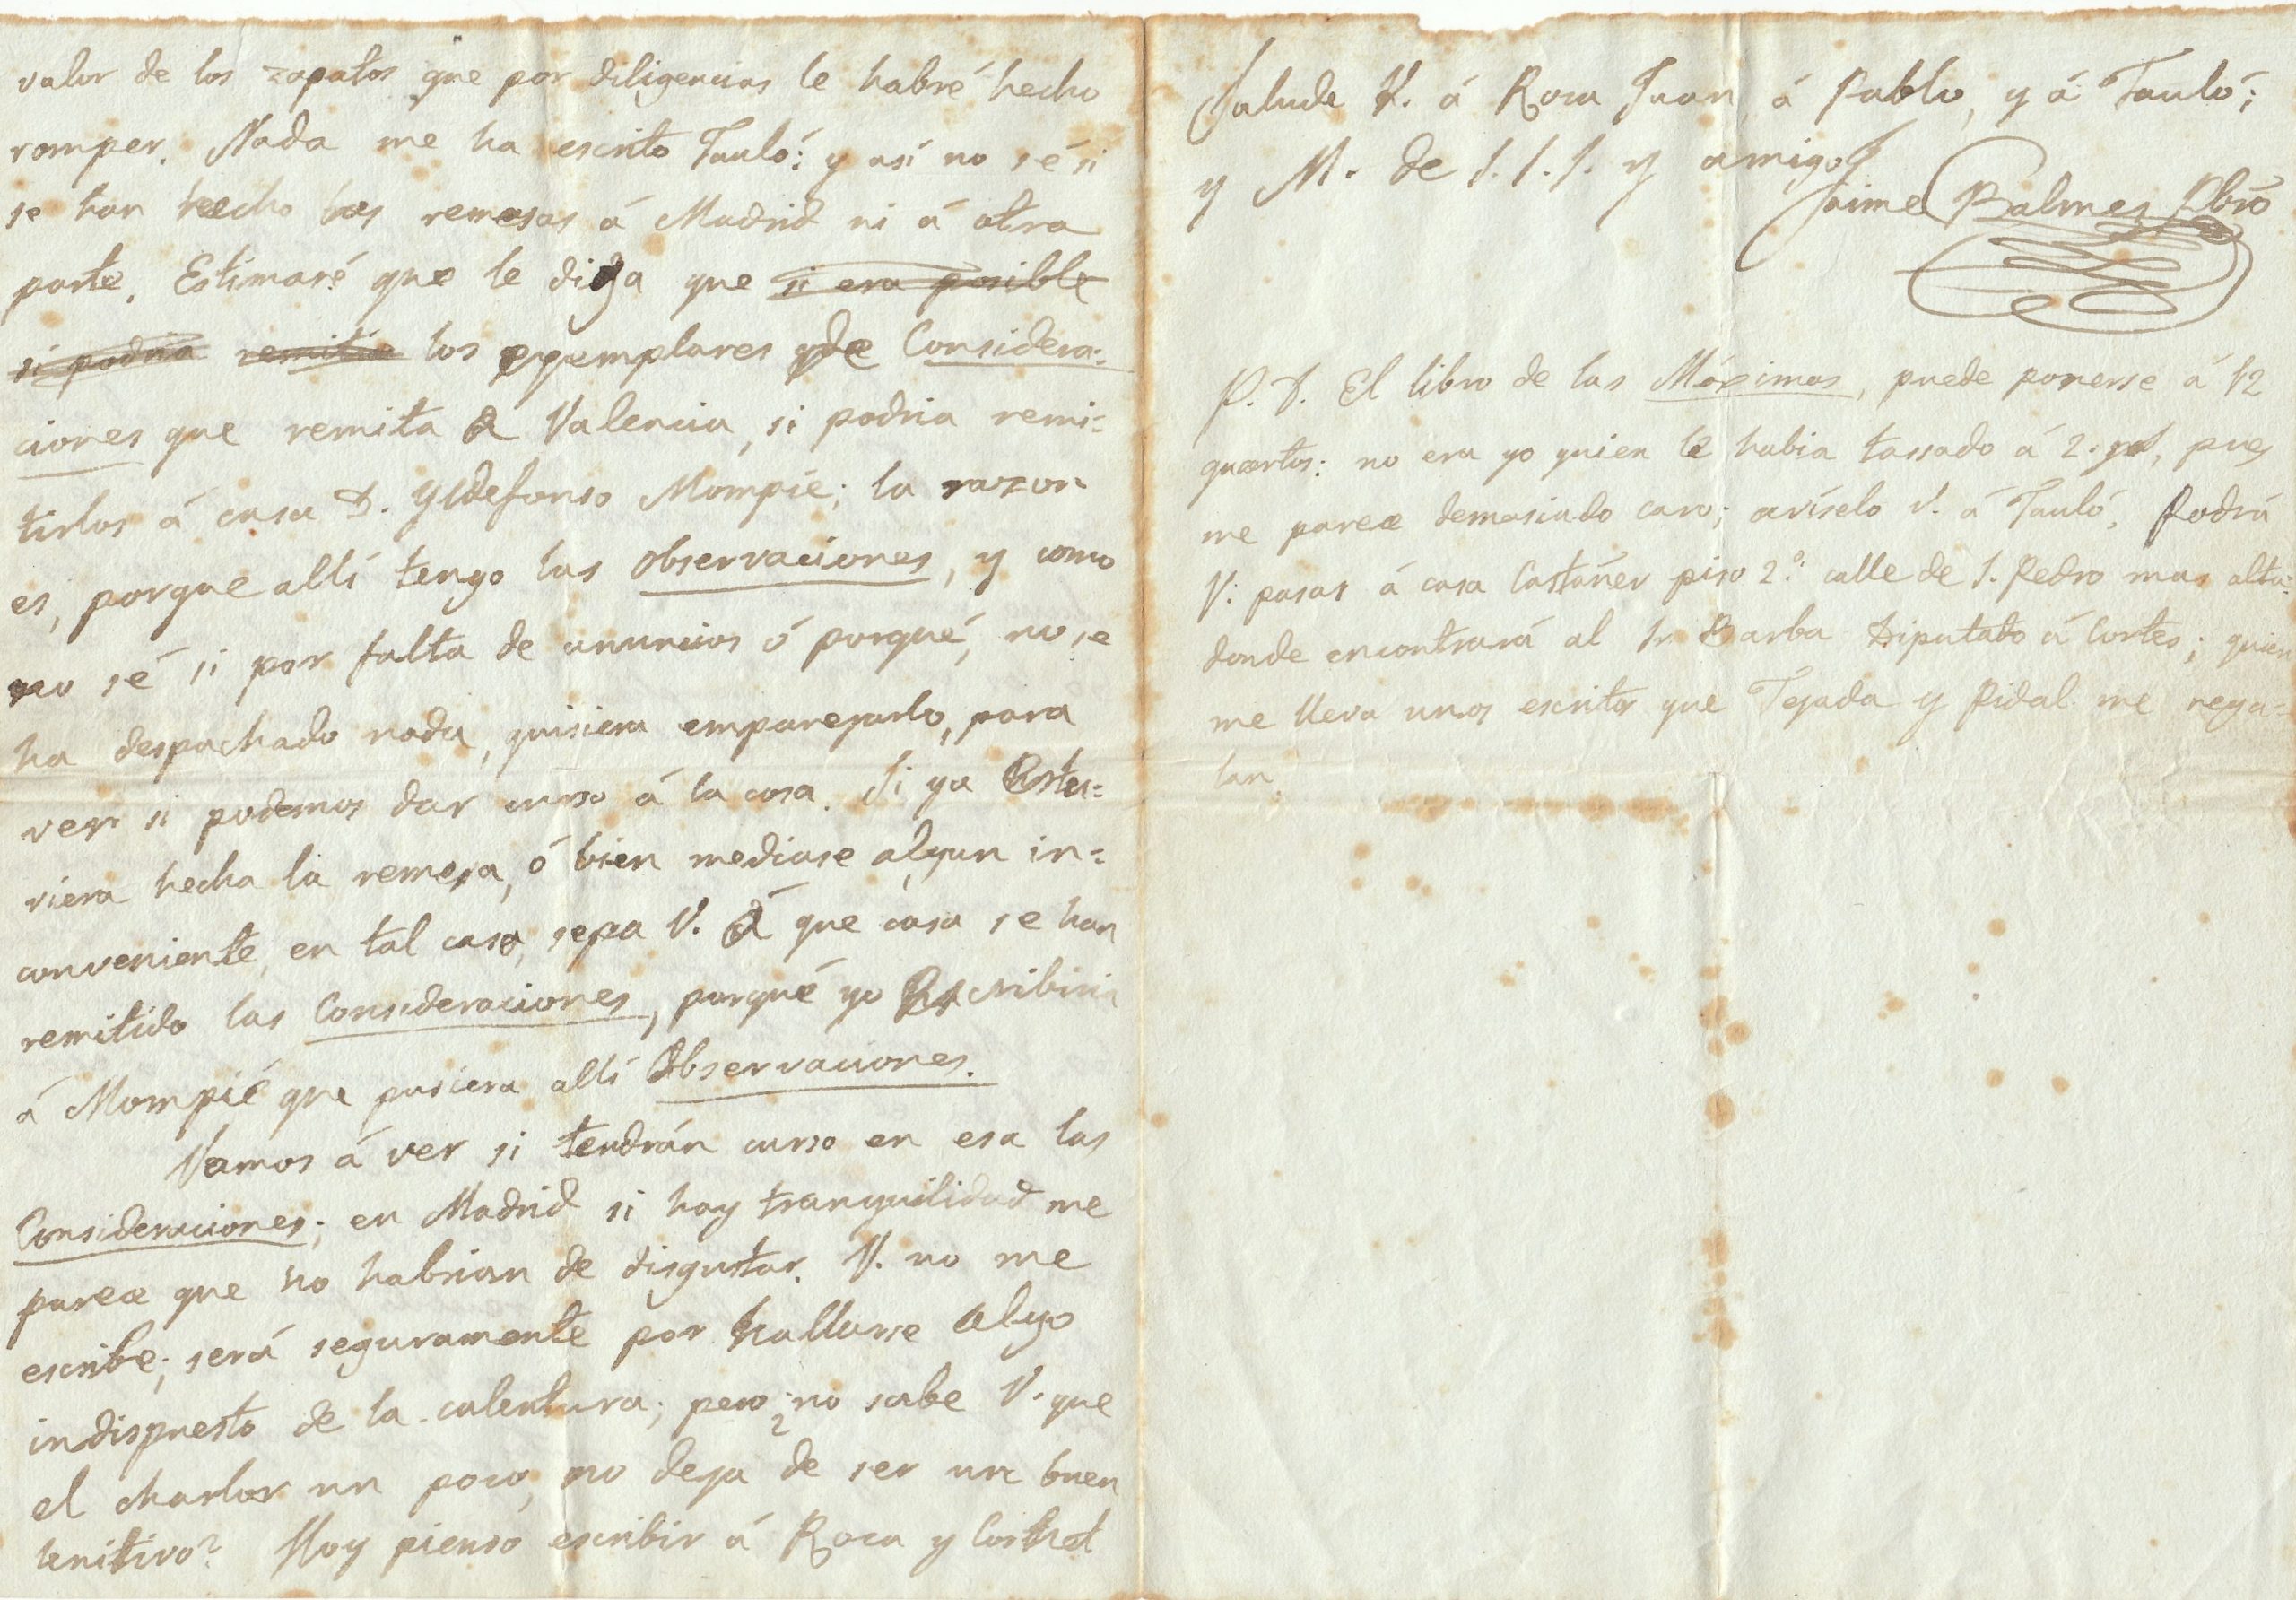 valor de los zapatos que por diligencias le habré hecho
romper. Nada me ha escrito Tauló: y así no sé si
se han hecho las remesas á Madrid ni á otra
parte. Estimaré que le diga que si era posible
si podria remitir los egemplares de Considera=
ciones que remita á Valencia, si podria remi=
tirlos á casa D. Yldefonso Mompie; la razon
es, porque allí tengo las Observaciones, y como
no sé si por falta de anuncios ó porqué, no se
ha despachado nada, quisiera emparejarlo, para
ver si podemos dar curso á la cosa. Si ya estu=
viera hecha la remesa, ó bien mediase algun in=
conveniente, en tal caso, sepa V. á que casa se han
remitido las Consideraciones, porqué yo escribiria
á Mompié que pusiera allí Observaciones.
Vamos á ver si tendrán curso en esa las
Consideraciones; en Madrid si hay tranquilidad me
parece que no habrian de disgustar. V. no me
escribe; será seguramente por hallarse algo
indispuesto de la calentura; pero ¿no sabe V. que
el charlar un poco, no deja de ser un buen
lenitivo? Hoy pienso escribir á Roca y
Salude V. á Roca Juan, á Pablo, y á Tauló;
y M. de S. S. S. y amigo
Jaime Balmes Pbro
P. D. El libro de las Máximas, puede ponerse á 12
quartos: no era yo quien le habia tassado á 2. rs, pues
me parece demasiado caro; avíselo V. á Tauló. Podrá
V. pasar á casa Castañer piso 2.º calle de S. Pedro mas alta
donde encontrará al Sr. Barba Diputado á Cortes; quien
me lleva unos escritos que Tejada y Pidal me rega=
lan.